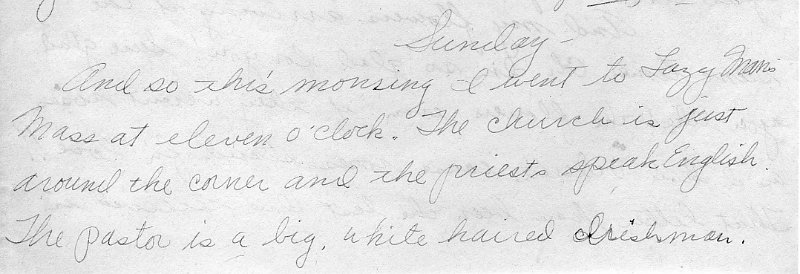 Sunday -
And so this morning I went to Lazy Man's
Mass at eleven o'clock. The church is just
around the corner and the priests speak English.
The pastor is a big, white haired Irishman.